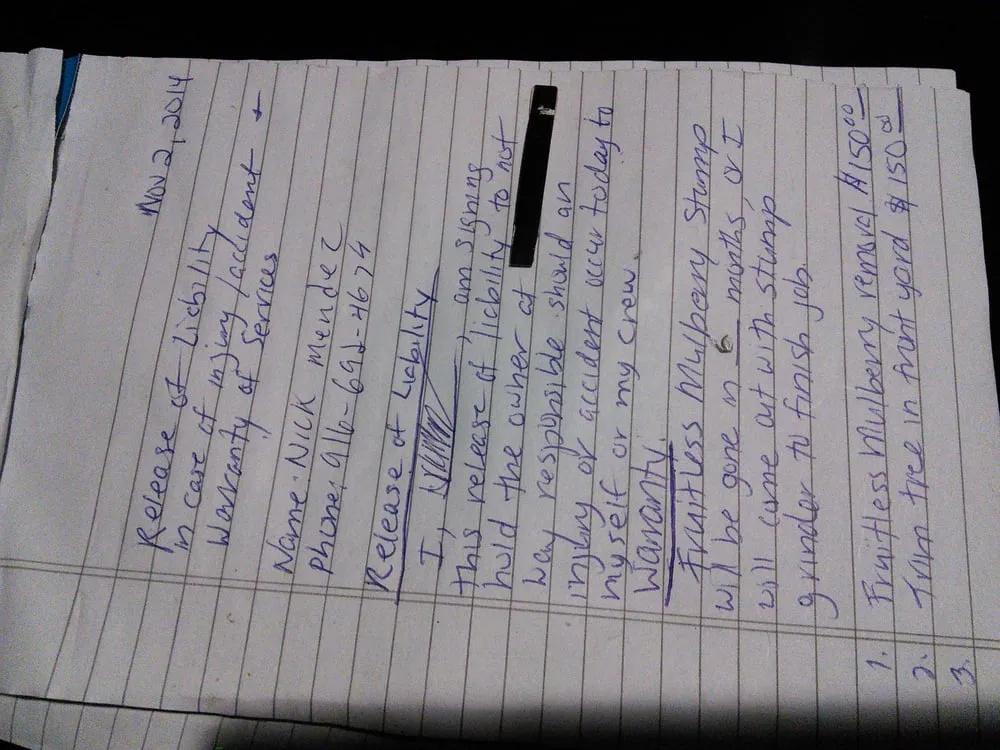 Nov 2, 2014
Release of Liability
in case of injury/accident +
Warranty of Services
Name: Nick Mendez
Phone: 916-692-4674
Release of Liability
I, , am signing
this release of liability to not
hold the owner at
way responsible should an
injury or accident occur today to
myself or my crew.
Waranty
Fruitless Mulberry Stump
will be gone in 6 months, or I
will come out with stump
grinder to finish job.
1. Fruitless Mulberry removal $150.00
2. Trim tree in front yard $150.00
3.